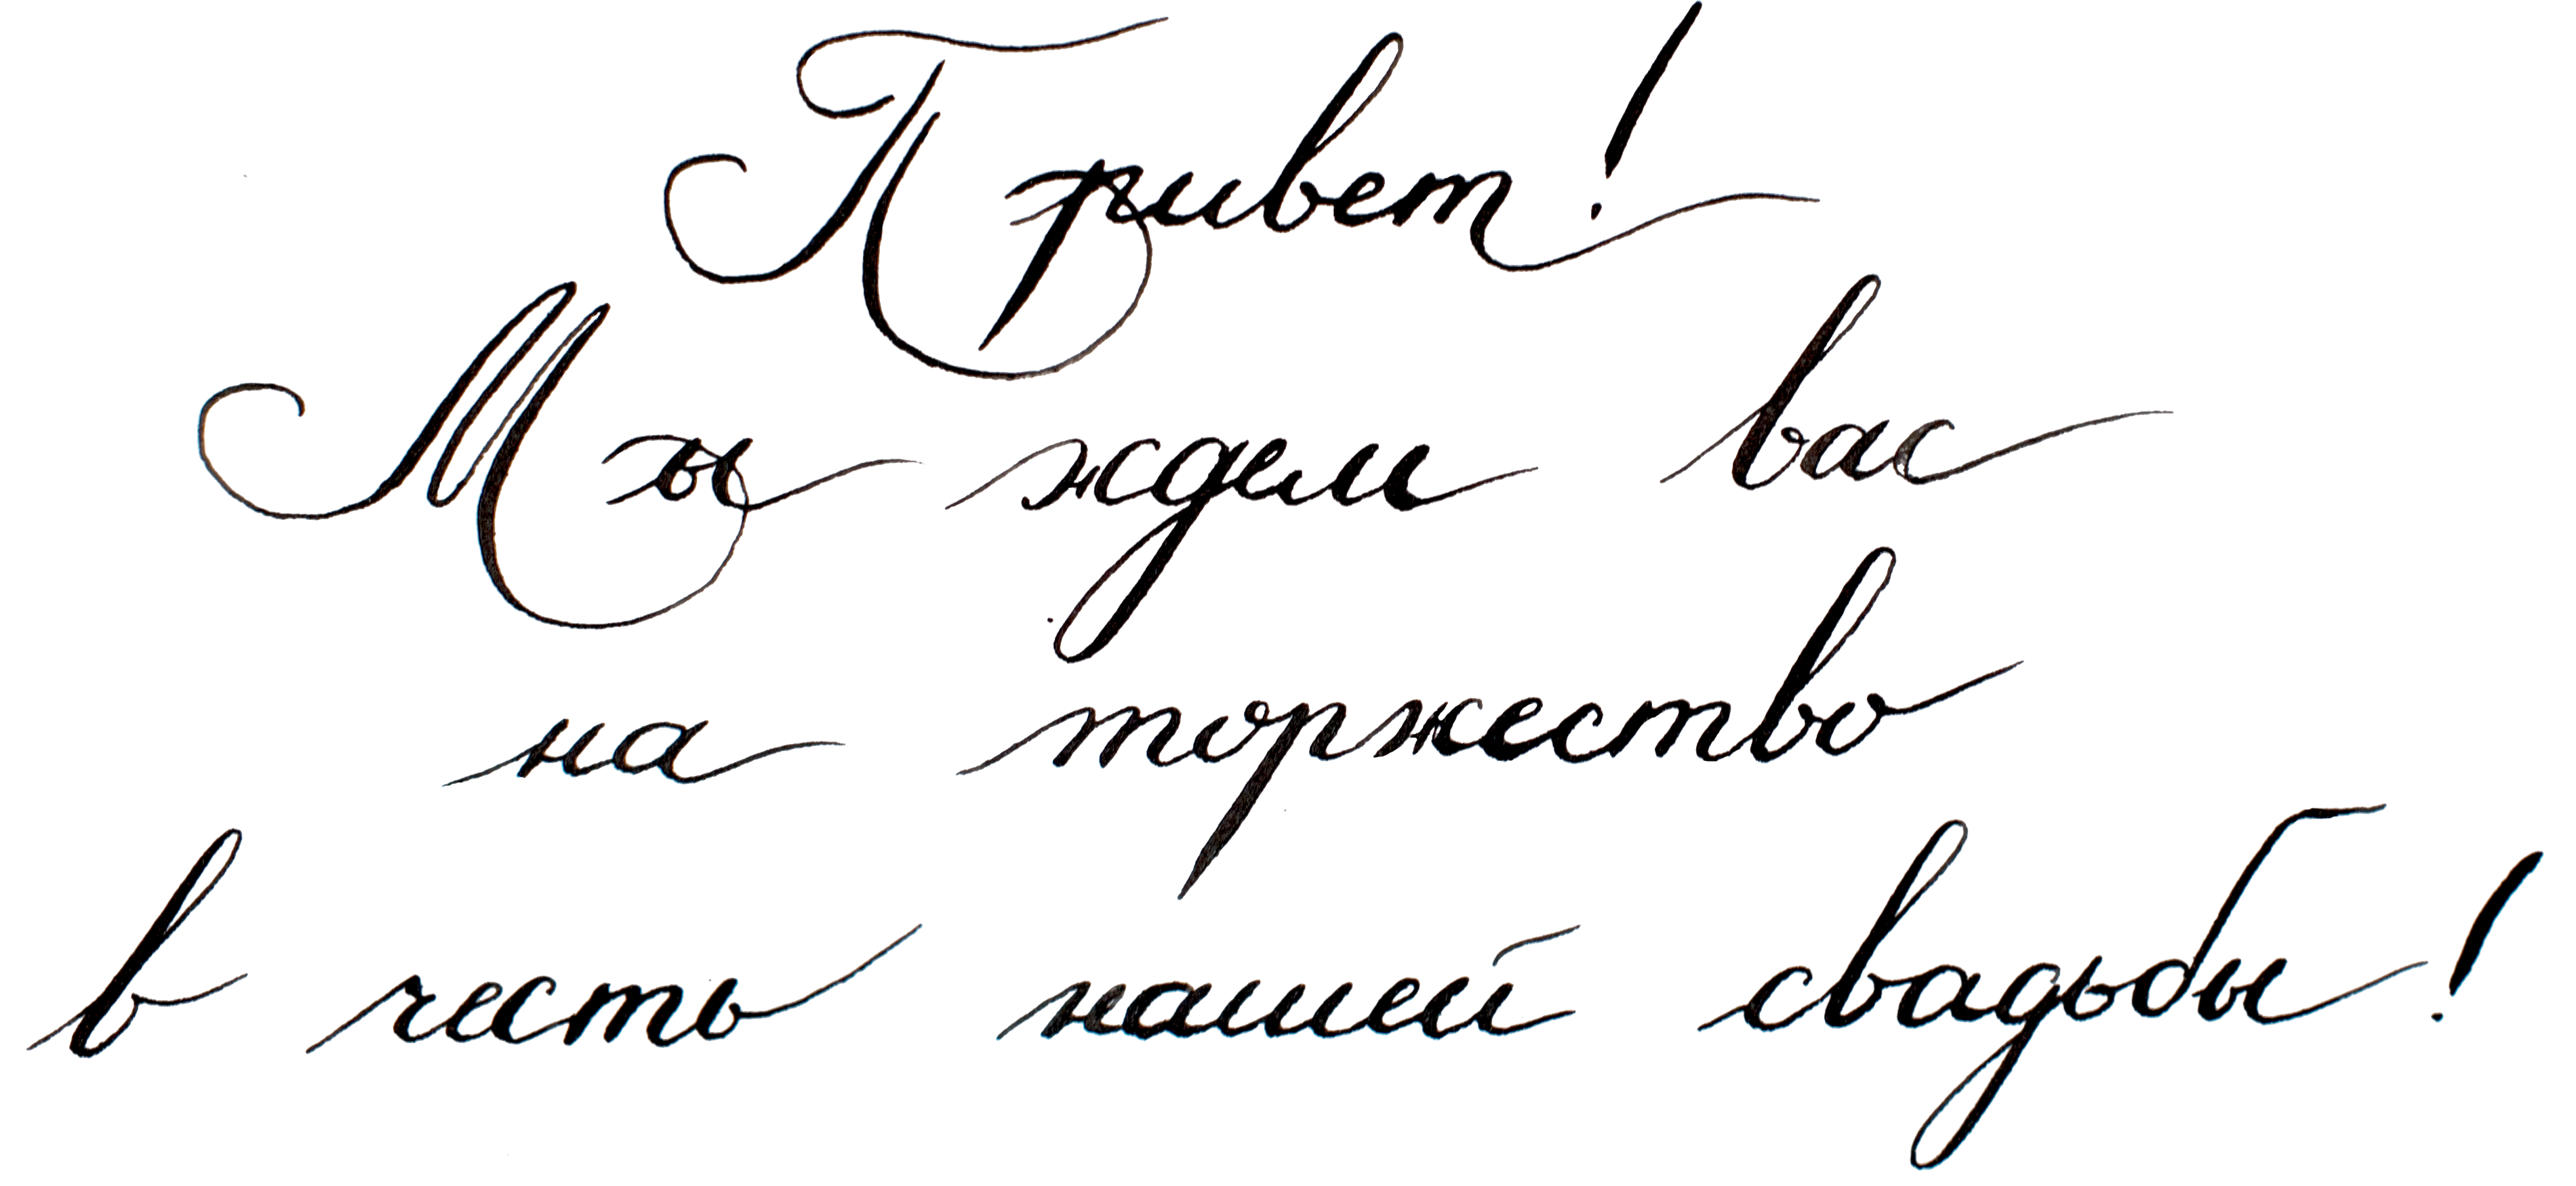 Привет!
Мы ждем вас
на торжество
в честь нашей свадьбы!